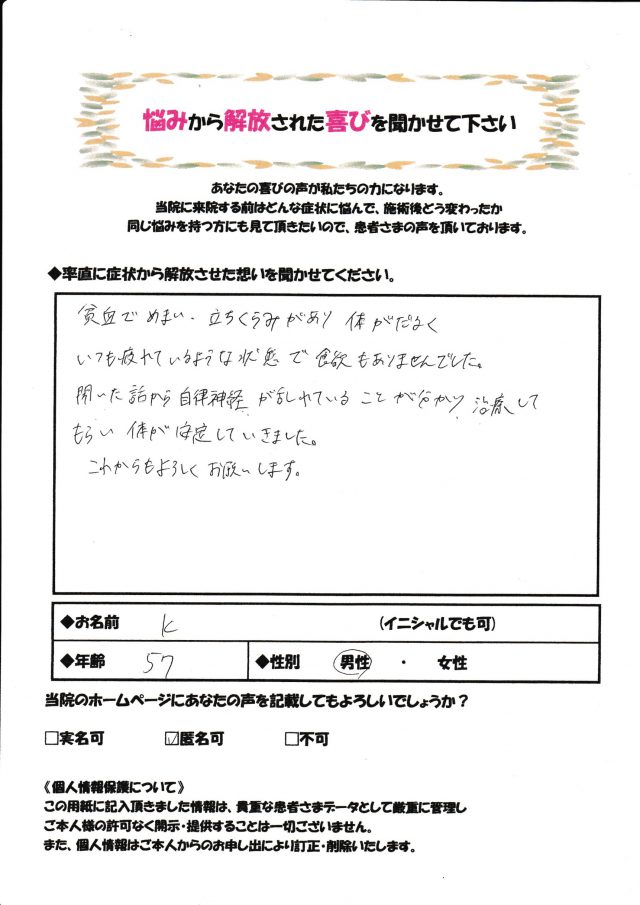 悩みから解放された喜びを聞かせて下さい
あなたの喜びの声が私たちの力になります。
当院に来院する前はどんな症状に悩んで、施術後どう変わったか
同じ悩みを持つ方にも見て頂きたいので、患者さまの声を頂いております。
◆率直に症状から解放させた想いを聞かせてください。
貧血でめまい・立ちくらみがあり 体がだるく
いつも疲れているような状態で食欲もありませんでした。
聞いた話から自律神経が乱れていることが分かり、治療して
もらい 体が安定していきました。
これからもよろしくお願いします。
◆お名前 K (イニシャルでも可)
◆年齢 57 ◆性別 男性 ・ 女性
当院のホームページにあなたの声を記載してもよろしいでしょうか？
□実名可 ☑匿名可 □不可
《個人情報保護について》
この用紙に記入頂きました情報は、貴重な患者さまデータとして厳重に管理し
ご本人様の許可なく開示・提供することは一切ございません。
また、個人情報はご本人からのお申し出により訂正・削除いたします。